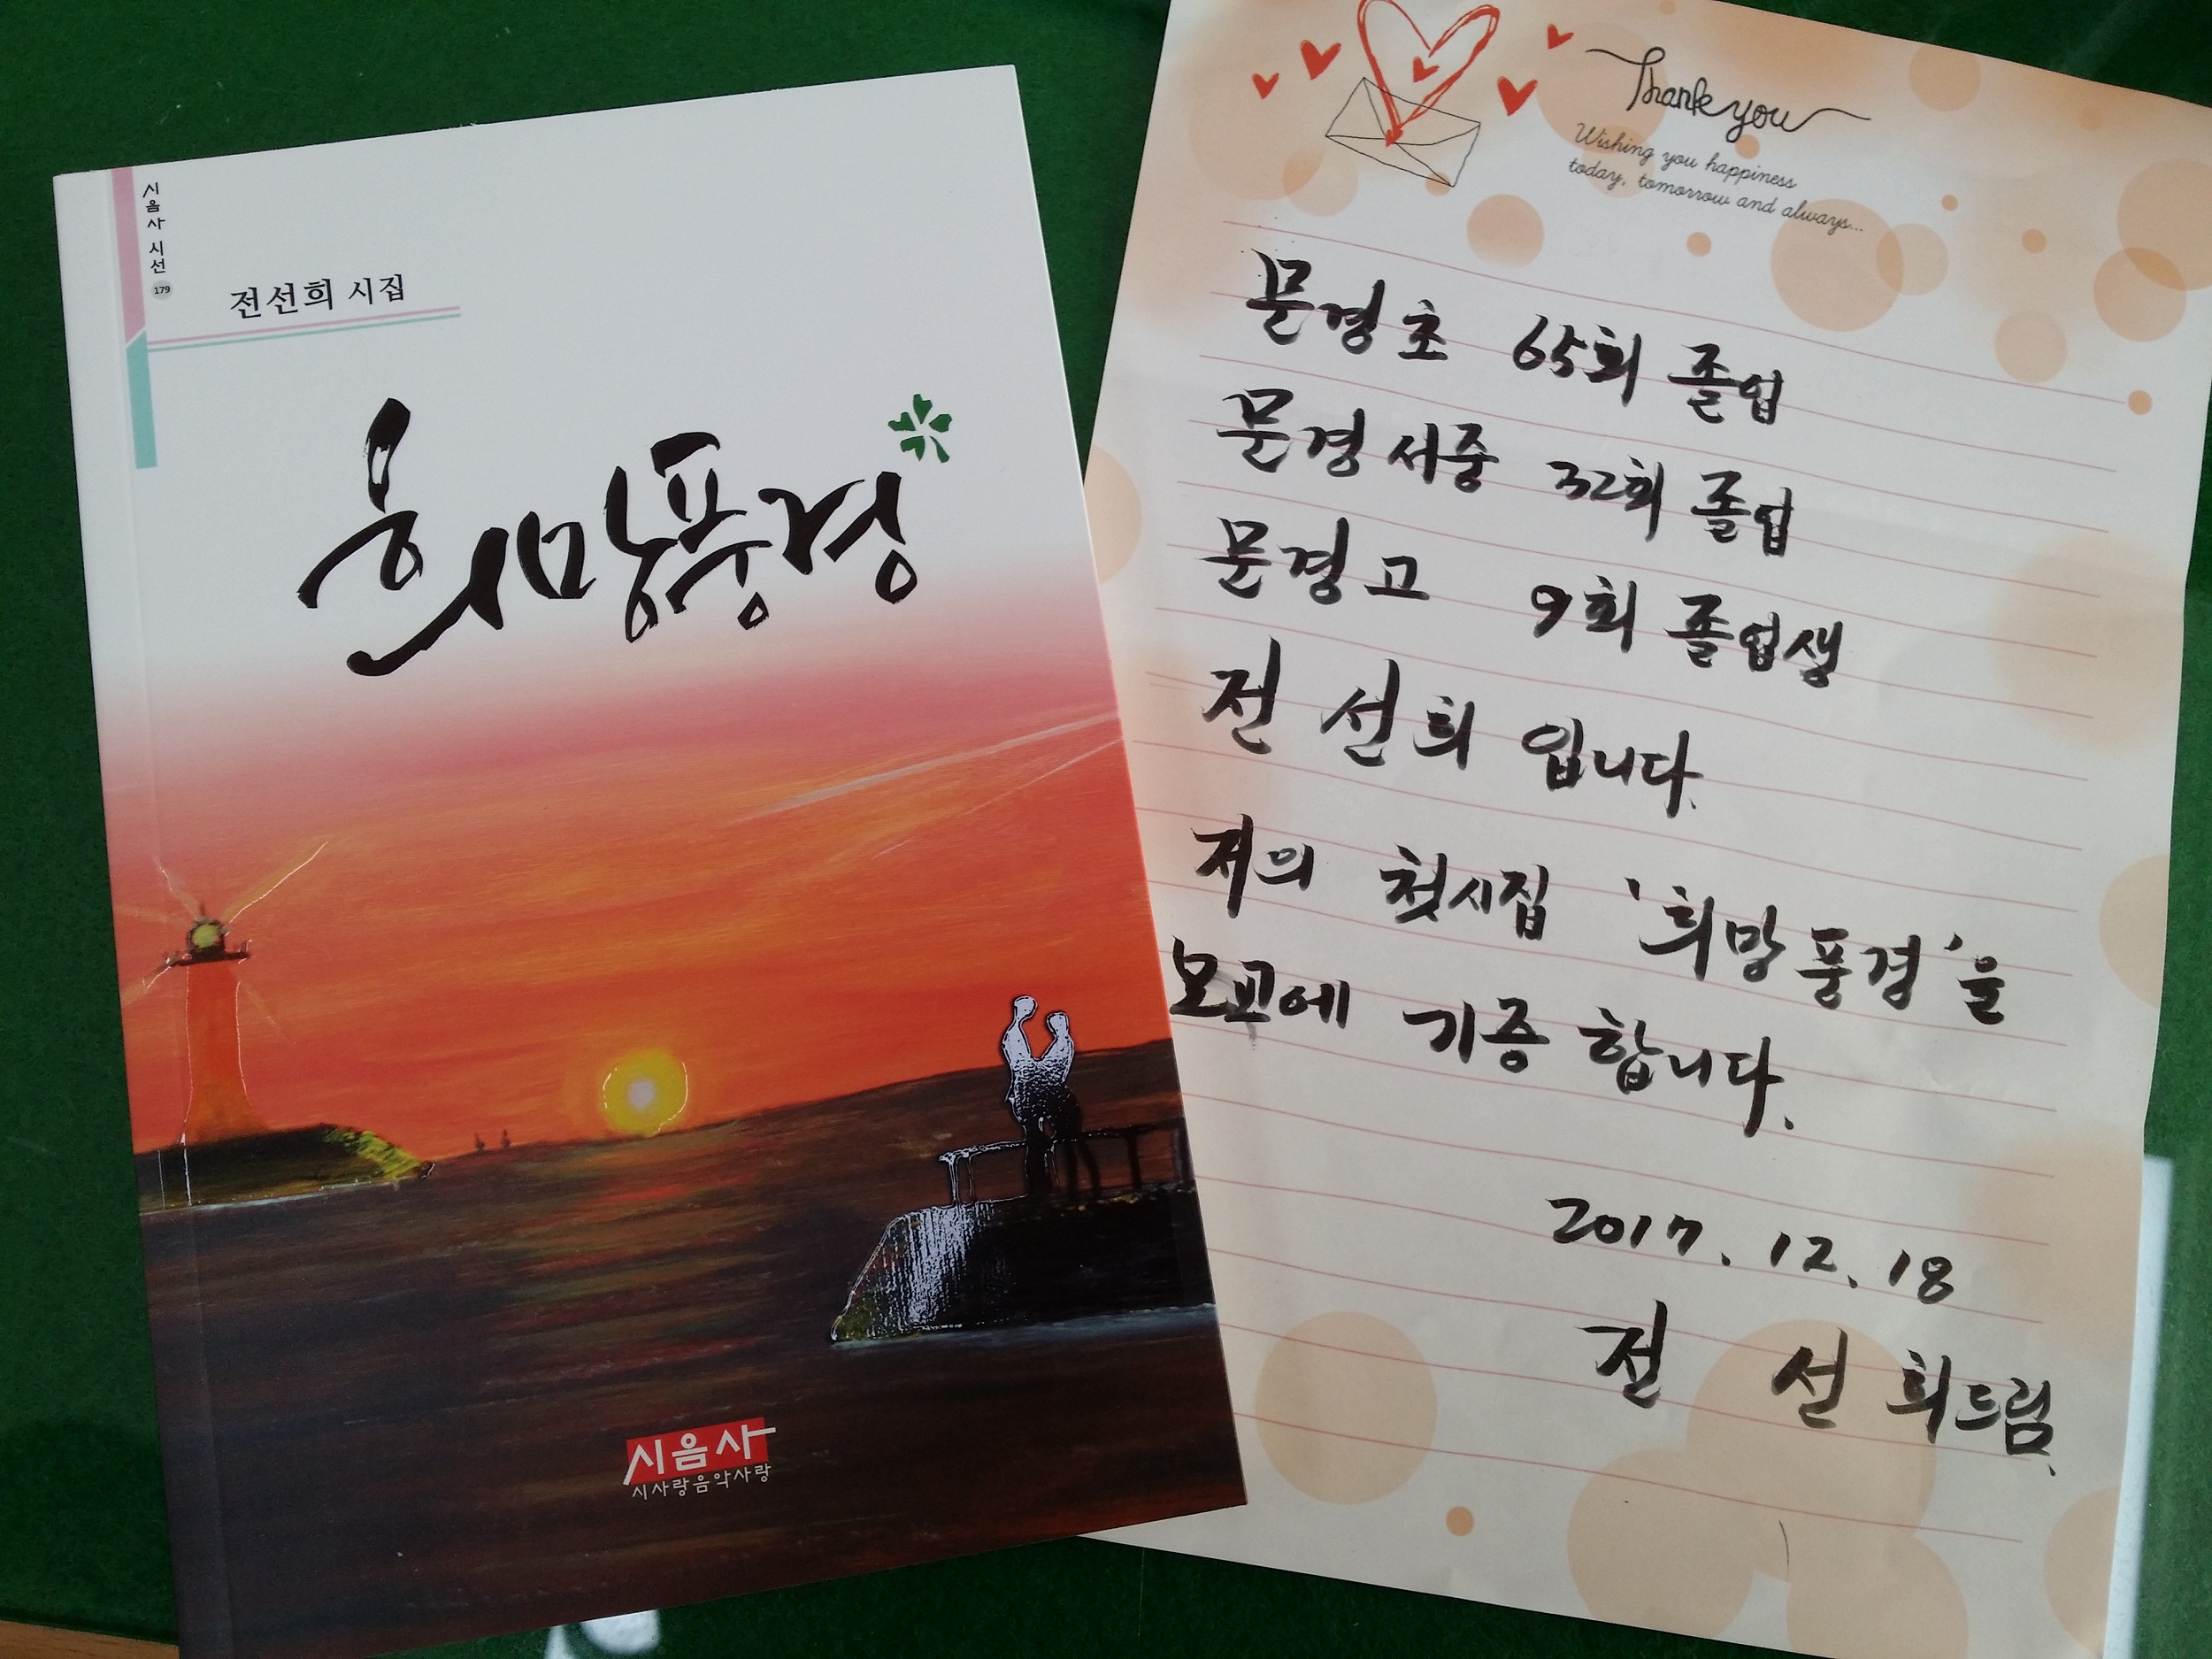 시음사 시선
179
전선희 시집
희망풍경
시음사
시사랑음악사랑
Thank you
Wishing you happiness
today, tomorrow and always...
문경초 65회 졸업
문경서중 32회 졸업
문경고 9회 졸업생
전 선희 입니다.
저의 첫시집 '희망풍경'을
모교에 기증 합니다.
2017. 12. 18
전 선 희드림.